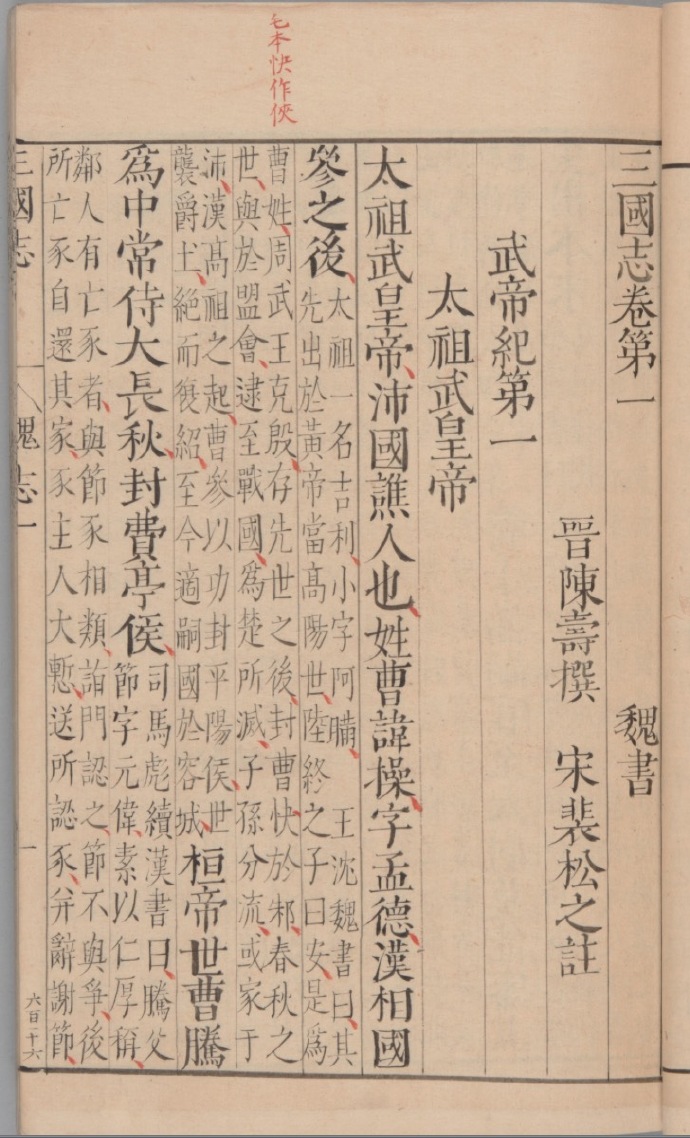 毛本快作俠
三國志卷第一
魏書
晉陳壽撰 宋裴松之註
武帝紀第一
太祖武皇帝
太祖武皇帝沛國譙人也姓曹諱操字孟德漢相國
參之後
太祖一名吉利小字阿瞞 王沈魏書曰其
先出於黃帝當高陽世陸終之子曰安是為
曹姓周武王克殷存先世之後封曹快於邾春秋之
世與於盟會逮至戰國為楚所滅子孫分流或家于
沛漢高祖之起曹參以功封平陽侯世
襲爵土絕而復紹至今適嗣國於容城
桓帝世曹騰
為中常侍大長秋封費亭侯
司馬彪續漢書曰騰父
節字元偉素以仁厚稱
鄰人有亡豕者與節豕相類詣門認之節不與爭後
所亡豕自還其家豕主人大慙送所認豕并辭謝節
三國志
魏志一
一
六百二十六